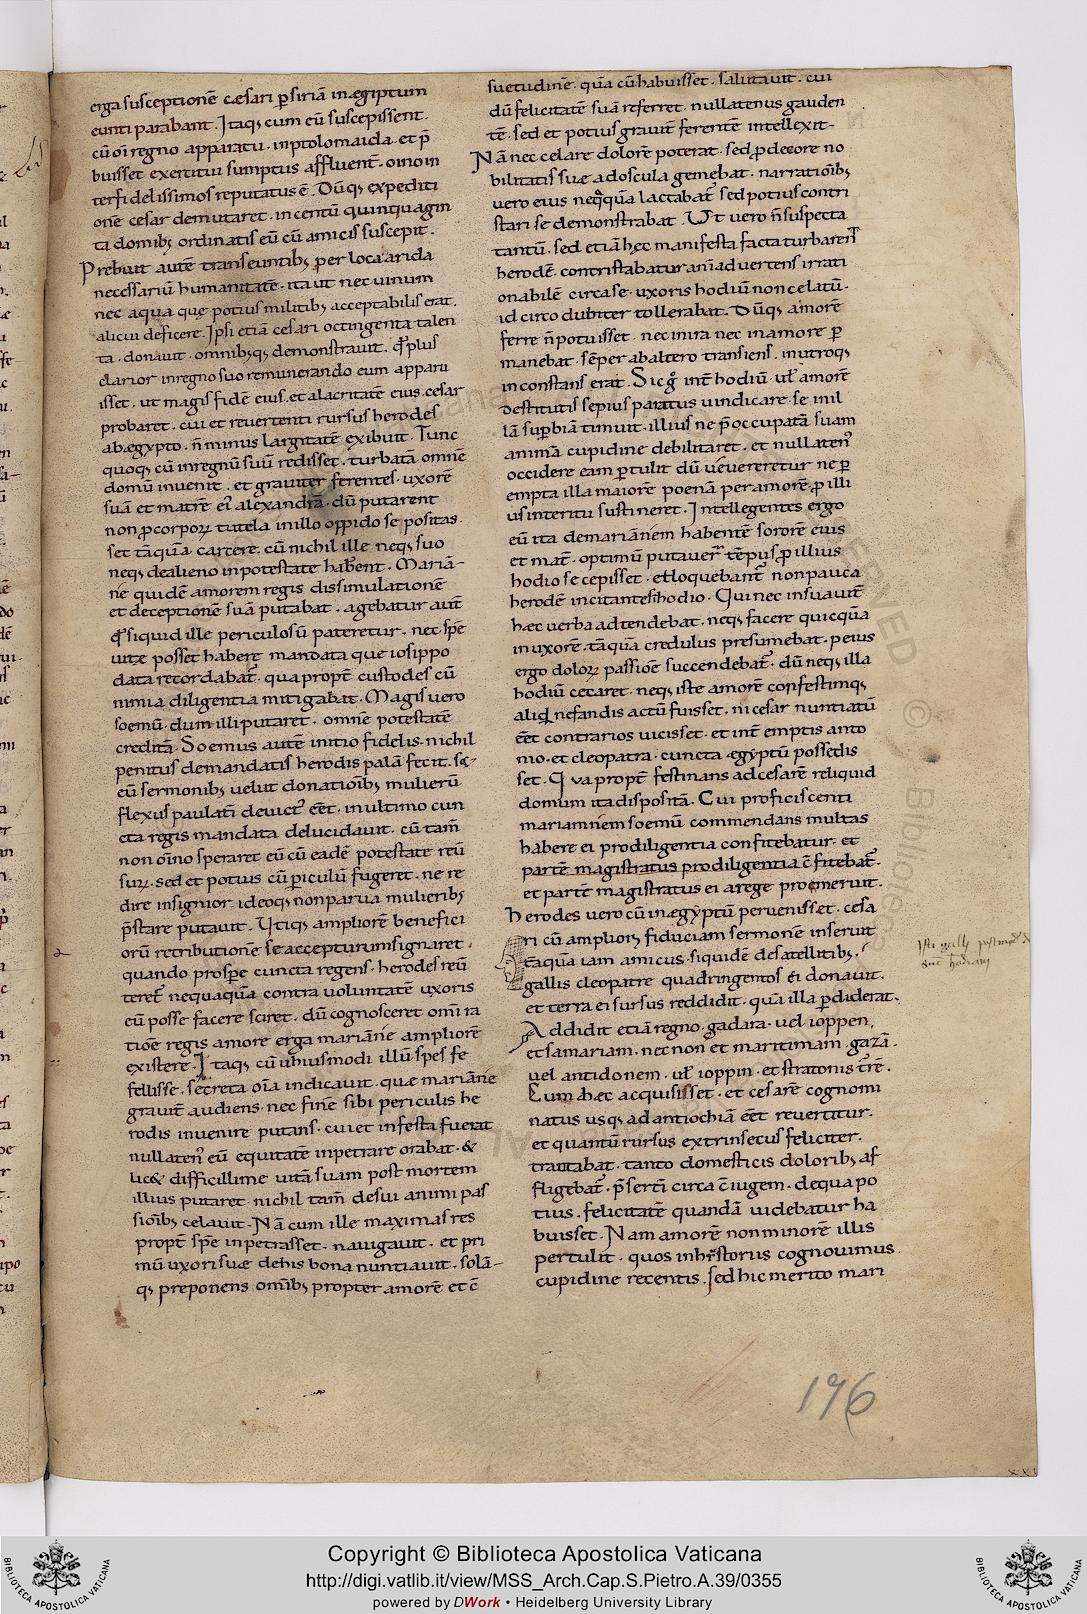 erga susceptionē cæsari ꝑ siriā in ægiptum
eunti parabant. Itaqꝫ cum eū suscepissent.
cū oī regno apparatu. in ptolomaida. et p̄
buisset exercitui sumptus affluent̄. om̄ioīn
terfidelissimos reputatus ē. Dūqꝫ expediti
onē cesar demutaret. in centū quinquagin
ta domibꝫ ordinatis eū cū amicis suscepit.
Prebuit autē transeuntibꝫ per loca arida
necessariū humanitatē. ita ut nec uinum
nec aqua quę potius militibꝫ acceptabilis erat.
alicui deficere. Ipsi etiā cesari octingenta talen
ta. donauit. omnibꝫqꝫ demonstrauit. qđ plus
clarior in regno suo remunerando eum apparu
isset. ut magis fidē eius. et alacritatē eius. cesar
probaret. cui et reuertenti rursus herodes
ab ægypto. n̄ minus largitatē exibuit. Tunc
quoqꝫ cū in regnū suū redisset. turbatā omnē
domū inuenit. et grauiter ferentes. uxorē
suā et matrē ei᾿ alexandrā. dū putarent
non ꝓ corporꝝ tutela in illo oppido se positas.
set tāquā carcere. cū nichil ille neqꝫ suo
neqꝫ de alieno in potestate hab̄ent. Mariā-
nē quidē amorem regis dissimulationē
et deceptionē suā putabat. agebatur aūt
qđ siquid ille periculosū pateretur. nec spē
uitæ posset habere mandata que iosippo
data recordabat᷑. qua propt̄ custodes cū
nimia diligentia mitigabat. Magis uero
soemū. dum illi putaret. omnē potestatē
creditā. Soemus autē initio fidelis. nichil
penitus demandatis herodis palā fecit. sę-
eū sermonibꝫ uelut donatioībꝫ mulierū
flexus paulatī deuict᾿ eēt. in ultimo cun
cta regis mandata delucidauit. cū tam̄
non oīno speraret eū cū eadē potestate reū
surꝝ. sed et potius cū ꝑiculū fugeret. ne re
dire insignior. ideoqꝫ non parua mulieribꝫ
p̄stare putauit. Utiqꝫ ampliorē benefici
orū retributionē se accepturum signaret.
quando prosꝑe cuncta regens. herodes reū
teret᷑ nequaquā contra uoluntatē uxoris
eū posse facere sciret. dū cognosceret om̄i ra
tioē regis amore erga mariānē ampliorē
existere. Itaqꝫ cū uhiusmodi illū spes fe
fellisse. secreta oīa indicauit. quæ mariānē
grauit̄ audiens. nec finē sibi periculis he
rodis inuenire putans. cui et infesta fuerat
nullaten᾿ eū equitate inpetrare orabat. &
lic& difficillime uitā suam post mortem
illius putaret. nichil tam̄ de sui animi pas
sioībꝫ celauit. Nā cum ille maximas res
propt̄ spē inpetrasset. nauigauit. et pri
mū uxori suæ de his bona nuntiauit. solā-
qꝫ preponens om̄ibꝫ propter amorē et c̄
suetudinē. quā cū habuisset. salutauit. cui
dū felicitatē suā referret. nullatenus gauden
tē. sed et potius grauit̄ ferentē intellexit.
Nā nec celare dolorē poterat. sed ꝓ decore no
bilitatis suæ ad oscula gemebat. narratioībꝫ
uero eius neqꝗquā lactabat᷑ sed potius contri
stari se demonstrabat. Ut vero n̄ suspecta
tantū. sed etiā hęc manifesta facta turbarent̄
herodē. contristabatur aīaduertens irrati
onabilē circa se. uxoris hodiū non celatū.
id circo dubiter tollerabat. Dūqꝫ amorē
ferre n̄ potuisset. nec in ira nec in amore ꝑ
manebat. sēper ab altero transiens. in utroqꝫ
inconstans erat. Sic gͦ int̄ hodiū. ut᷑ amorē
destitutis sepius paratus uindicare. se in il
lā suꝑbiā timuit. illius ne p̄occupatā suam
animā cupidine debilitaret. et nullaten᾿
occidere eam ꝑtulit dū uereretur ne ꝑ
empta illa maiorē poenā per amorē. ꝓ illi
us interitu sustineret. Intellegentes ergo
eū ita de mariānem habentē sororē eius
et mat᷑. optimū putauer̄. tēpus ꝓ illius
hodio se cepisset. et loquebant᷑ non pauca
herodē incitantes hodio. Qui nec insuauit̄
hæc uerba adtendebat. neqꝫ facere quicquā
in uxorē. tāquā credulus presumebat. peius
ergo dolorꝝ passiōe succendebat᷑. dū neqꝫ illa
hodiū cecaret. neqꝫ iste amorē confestimqꝫ
aliqđ nefandis actū fuisset. ni cesar nuntiatū
eēt contrarios uicisset. et int̄emptis anto
nio. et cleopatra. cuncta ægyptū possedis
set. Qua propt̄ festinans ad cesarē reliquid
domum ita dispositā. Cui proficiscenti
mariamnem soemū commendans multas
habere ei pro diligentia confitebatur. et
partē magistratus pro diligentia c̄fitebat᷑.
et partē magistratus ei a rege promeruit.
Herodes vero cū in ægyptū peruenisset. cesa
ri cū ampliorꝫ fiduciam sermonē inseruit
tāquā iam amicus. siquidē de satellitibꝫ
gallis cleopatre quadringentos ei donauit.
et terra ei sursus reddidit. quā illa ꝑdiderat.
Addidit etiā regno gadara. uel ioppen,
et samariam. nec non et maritimam. gazā.
uel antidonem. ut᷑ ioppin. et stratonis t̄rē.
Cum hæc acquisisset. et cesarē cognomi
natus usqꝫ ad antiochiā eēt reuertitur.
et quantū rursus extrinsecus feliciter.
tractabat. tanto domesticis doloribꝫ af
fligebat᷑. p̄sertī circa c̄iugem. de qua po
tius. felicitatē quandā uidebatur ha
buisset. Nam amorē non minorē illis
pertulit. quos in hystoriis cognouimus.
cupidine recentis. sed hic merito mari
196
Copyright © Biblioteca Apostolica Vaticana
http://digi.vatlib.it/view/MSS_Arch.Cap.S.Pietro.A.39/0355
powered by DWork • Heidelberg University Library
BIBLIOTECA APOSTOLICA VATICANA
BIBLIOTECA APOSTOLICA VATICANA